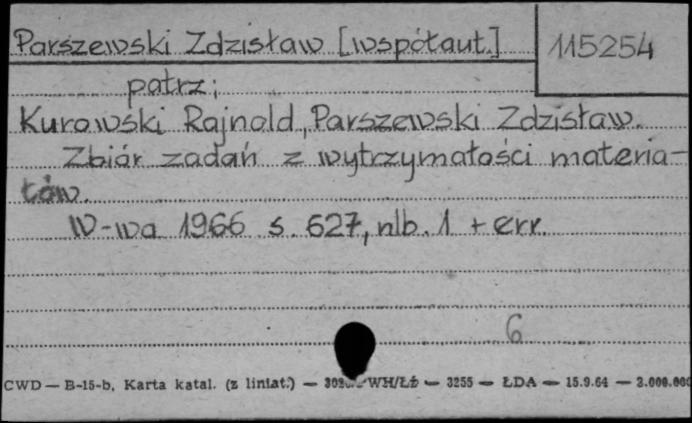 Parszewski Zdzisław [współaut.]
115254
patrz:
Kurowski Rajnold, Parszewski Zdzisław.
Zbiór zadań z wytrzymałości materia-
łów.
W-wa 1966 s. 627, nlb. 1 + err.
6
CWD — B-15-b, Karta katal. (z liniat.) — WH/Łź — 3255 — ŁDA — 15.9.64 — 2.000.000